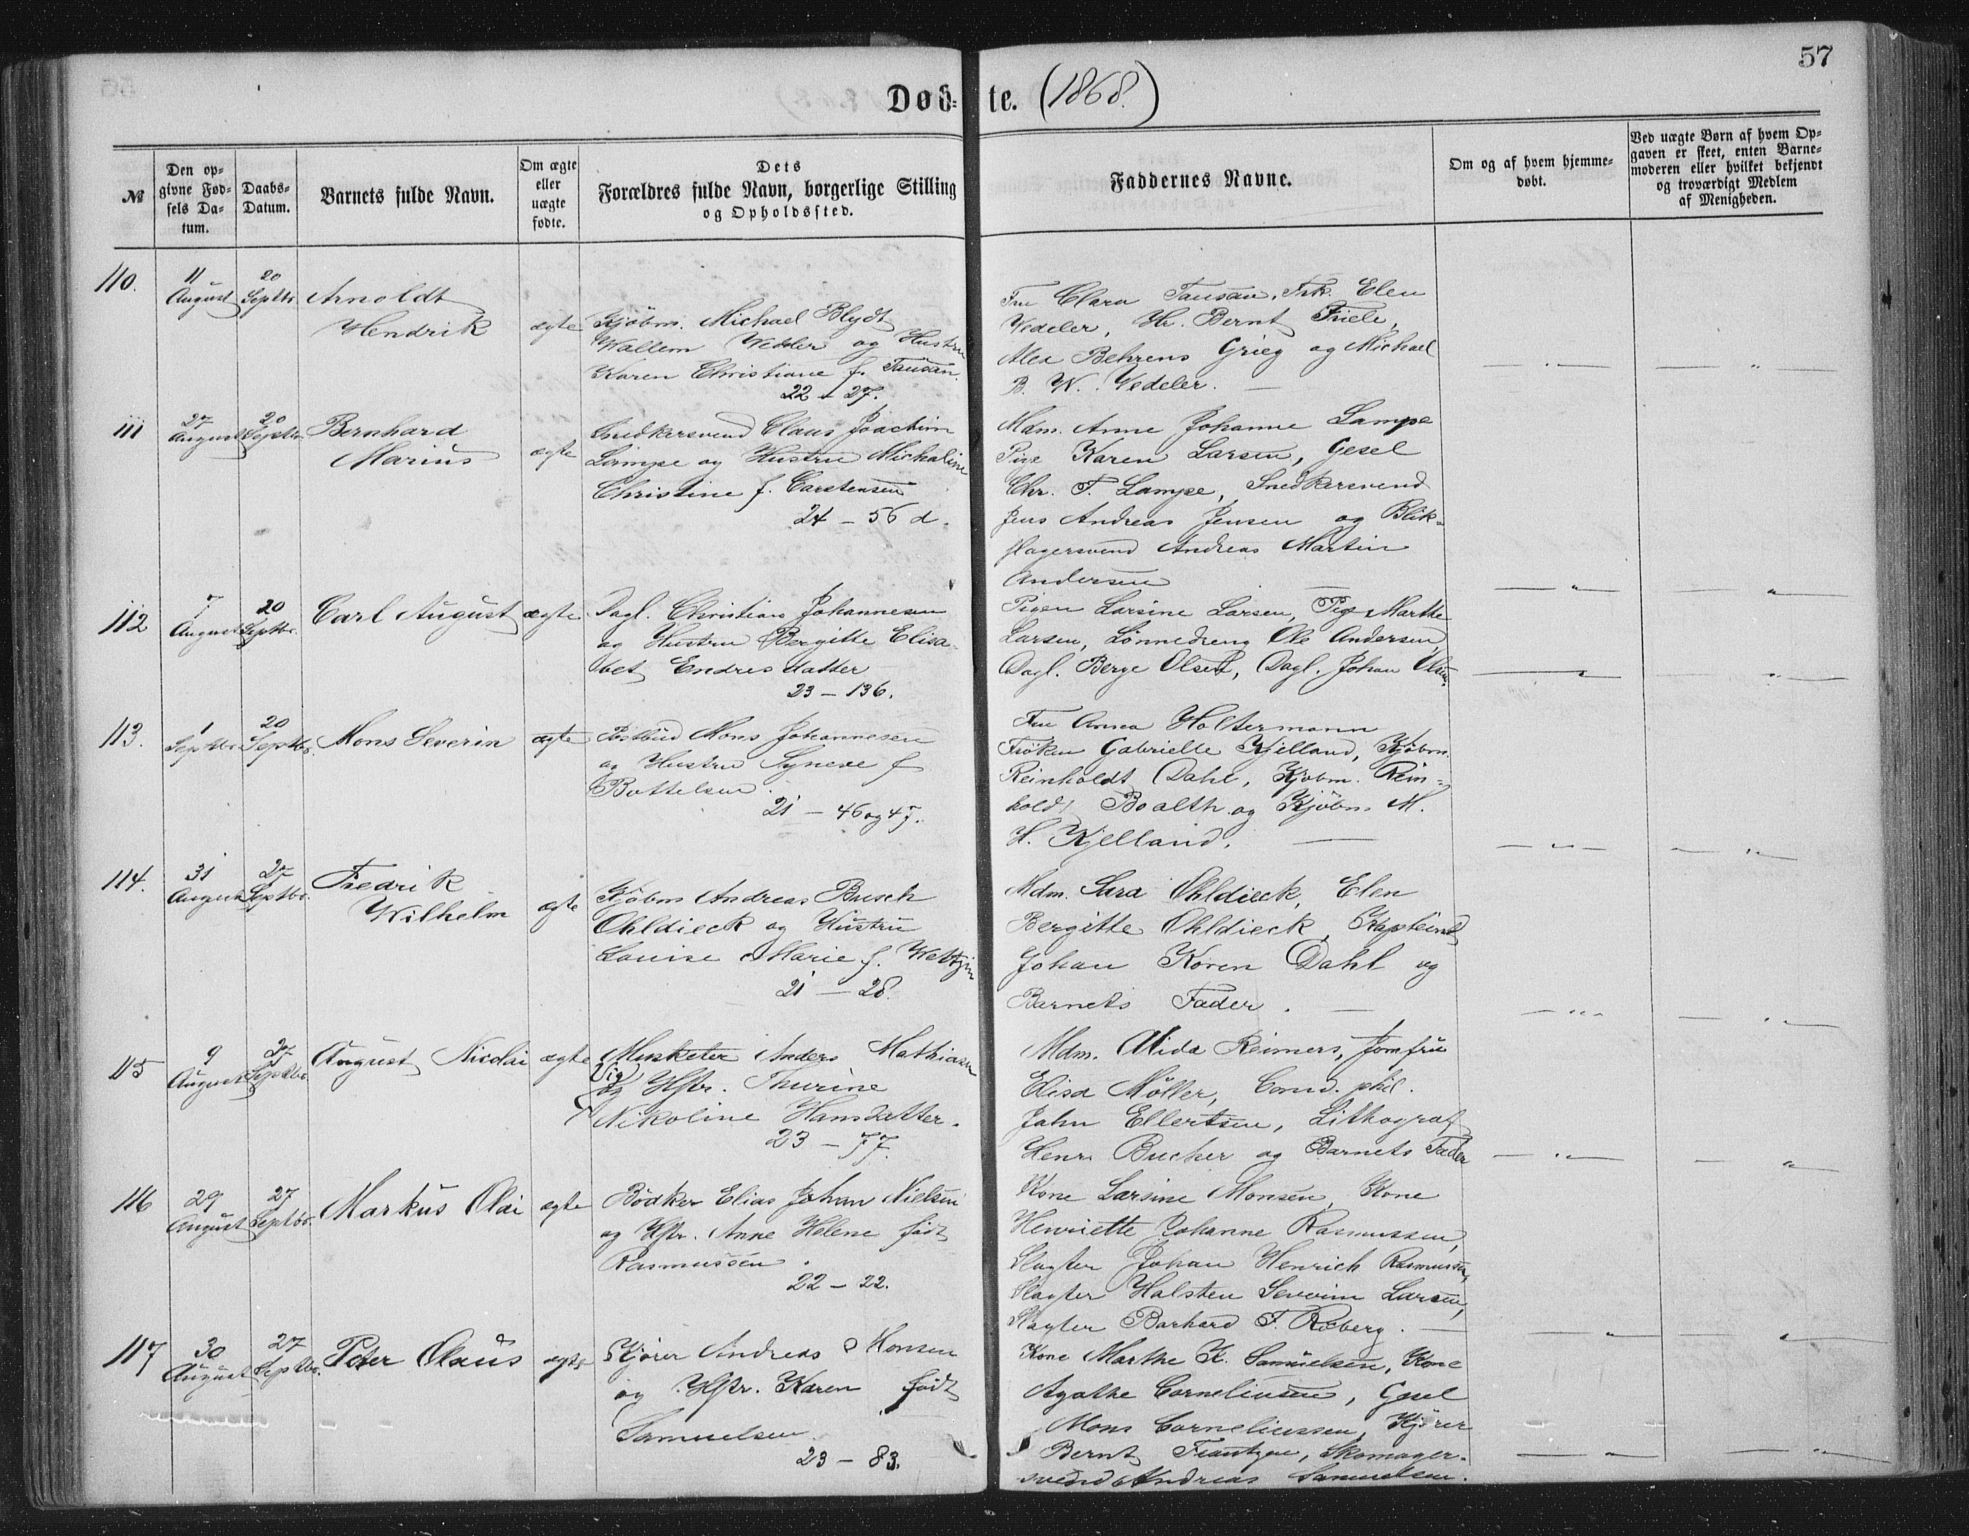 57
Døb= te. (1868.)
№
Den op-
givne Fød-
sels Da-
tum.
Daabs-
Datum.
Barnets fulde Navn.
Om ægte
eller
uægte
fødte.
Dets
Forældres fulde Navn, borgerlige Stilling
og Opholdssted.
Faddernes Navne.
Om og af hvem hjemme-
døbt.
Ved uægte Børn af hvem Op-
gaven er skeet, enten Barne-
moderen eller hvilket bekjendt
og troværdigt Medlem
af Menigheden.
110.
11 August
20 Septbr.
Arnoldt
Hendrik
ægte
Kjøbm. Michael Blydt
Wallem Vedeler og Hustru
Karen Christiane f. Fausan.
22 – 27.
Fru Clara Fausan, Frk. Elen
Vedeler, Hr. Bernt Friele,
Alex Behrens Grieg og Michael
B. W. Vedeler. —
111
27 August
20 Septbr.
Bernhard
Marius
ægte
Snedkersvend Claus Joachim
Lampe og Hustru Michaline
Christine f. Carstensen
24 – 56 d.
Mdm. Anne Johanne Lampe
Pige Karen Larsen, Gesel
Chr. F. Lampe, Snedkersvend
Jens Andreas Jensen og Blik-
slagersvend Andreas Martin
Andersen
112
7 August
20 Septbr.
Carl August
ægte
Dagl. Christian Johannesen
og Hustru Bergitte Elisa-
bet Endresdatter
23 – 136.
Pigen Larsine Larsen, Pige Marthe
Larsen, Lønnedreng Ole Andersen,
Dagl. Berge Olsen, Dagl. Johan Olsen.
113.
1 Septbr.
20 Septbr.
Mons Severin
ægte
Postbud Mons Johannesen
og Hustru Syneve f
Bottelsen.
21 – 46 og 47.
Fru Anna Holtermann
Frøken Gabrielle Kjelland, Kjøbm.
Reinholdt Dahl, Kjøbm. Rein-
hold Boalth og Kjøbm. M.
H. Kjelland. —
114.
31 August
27 Septbr.
Fredrik
Wilhelm
ægte
Kjøbm Andreas Busch
Ohldieck og Hustru
Louise Marie f. Weltzin
21 – 28.
Mdm. Sara Ohldieck, Elen
Bergitte Ohldieck, Kaptein
Johan Koren Dahl og
Barnets Fader. —
115
9 August
27 Septbr.
August Nicolai
ægte
Musketer Anders Mathiasen
og Hstr. Thurine
Nikoline Hansdatter.
23 – 77.
Mdm. Alida Reimers, Jomfru
Elisa Møller, Cand. phil.
Jahn Ellertsen, Lithograf
Henr. Bucher og Barnets Fader
116
29 August
27 Septbr.
Markus Olai
ægte
Bødker Elias Johan Nielsen
og Hstr. Anne Helene født
Rasmussen.
22 – 22.
Kone Larsine Monsen, Kone
Henriette Johanne Rasmussen,
Slagter Johan Henrich Rasmussen,
Slagter Halsten Severin Larsen,
Slagter Barhard F. Roberg. —
117
30 August
27 Septbr.
Peter Olaus
ægte
Kjører Andreas Monsen
og Hstr. Karen født
Samuelsen.
23 – 83.
Kone Marthe K. Samuelsen, Kone
Agathe Corneliussen, Gsel
Mons Corneliussen, Kjører
Bernt Frantzen, Skomager-
svend Andreas Samuelsen.